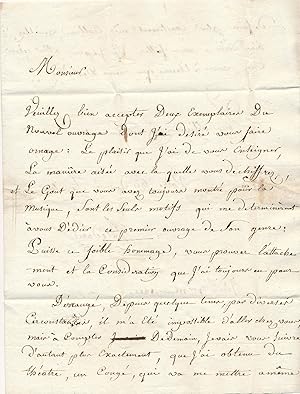 Monsieur
Veuillez bien accepter Deux Exemplaires Du
Nouvel ouvrage Dont J'ai desiré vous faire
omage: Le plaisir que J'ai de vous Enseigner,
La maniere aisée avec la quelle vous dechiffrez,
et Le Gout que vous avez toujours montré pour la
Musique, Sont les Seuls motifs qui me determinerent
a vous Dédier ce premier ouvrage de Son genre:
Puisse ce foible hommage, vous prouver L'attache
ment et la Consideration que J'ai toujours eu pour
vous.
Dérangé, Depuis quelque tems, par diverses
Circonstances, il m'a Eté impossible d'aller chez vous
mais a Compter De Demain, Je vais vous Suivre
d'autant plus Exactement, que J'ai obtenu du
théatre, un Congé, qui va me mettre a même